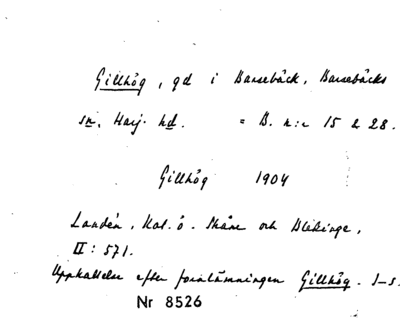 Gillhög, gd i Barsebäck, Barsebäcks
sn, Harj. hd. = B. n:r 15 & 28.
Gillhög 1904
Landén, Kat. ö. Skåne och Blekinge,
II: 571.
Uppkallelse efter fornlämningen Gillhög. J-S.
Nr 8526